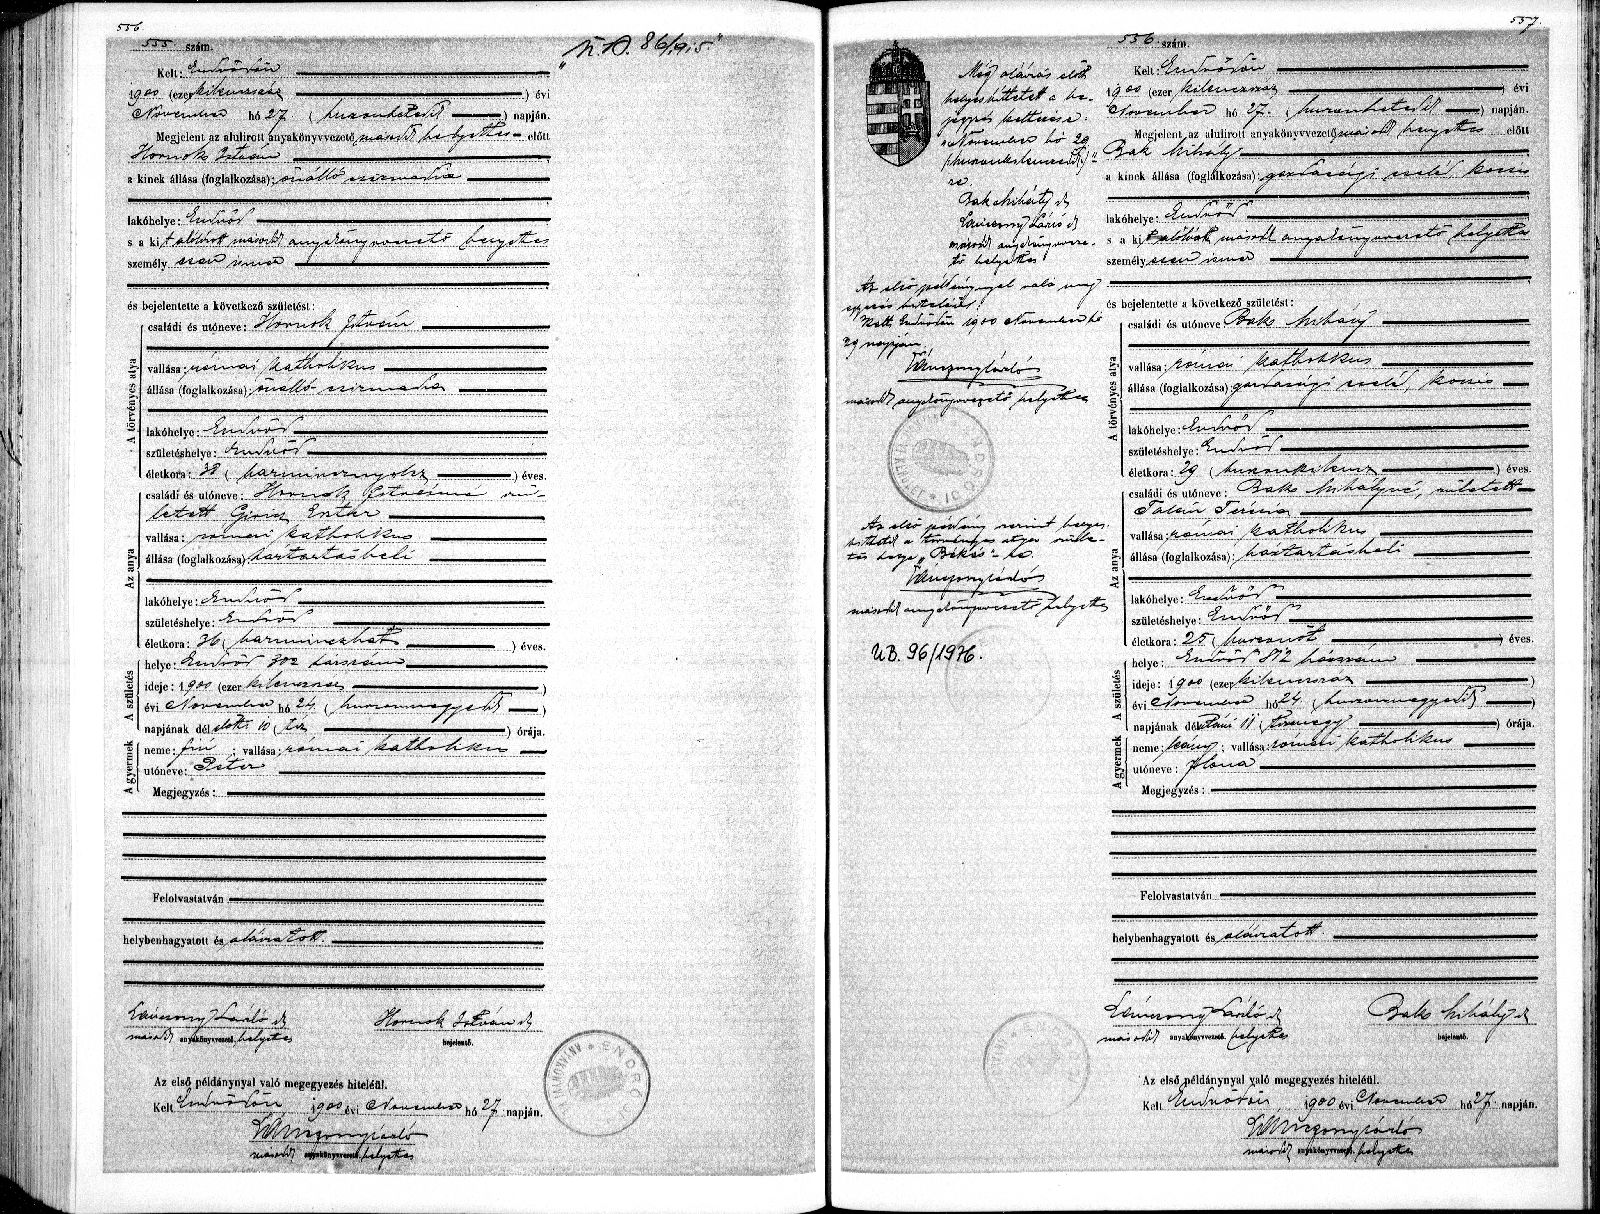 556
555 szám.
"N. D. 86/915"
Kelt: Endrődön
1900 (ezer kilenczszáz) évi
November hó 27 (huszonhetedik) napján.
Megjelent az alulirott anyakönyvvezető másodh helyettes előtt
Hornok István
a kinek állása (foglalkozása): önálló csizmadia
lakóhelye: Endrőd
s a kit alólírott másodh anyakönyvvezető helyettes
személyesen ismer
és bejelentette a következő születést:
A törvényes atya
családi és utóneve: Hornok István
vallása: római katholikus
állása (foglalkozása): önálló csizmadia
lakóhelye: Endrőd
születéshelye: Endrőd
életkora: 38 (harmincznyolcz) éves.
Az anya
családi és utóneve: Hornok Istvánné szü-
letett Eszter
vallása: római katholikus
állása (foglalkozása): háztartásbeli
lakóhelye: Endrőd
születéshelye: Endrőd
életkora: 36 (harminczhat) éves.
A születés
helye: Endrőd 302 házszám
ideje: 1900 (ezer kilenczszáz)
évi November hó 24 (huszonnegyedik)
napjának délelőtti 10 (tíz) órája.
A gyermek
neme: fiú; vallása: római katholikus
utóneve: Péter
Megjegyzés:
Felolvastatván
helybenhagyatott és aláiratott.
László
másodh anyakönyvvezető helyettes
Hornok István
bejelentő.
Az első példánynyal való megegyezés hiteléül.
Kelt Endrődön 1900 évi November hó 27 napján.
László
másodh anyakönyvvezető helyettes
557.
Még aláírás előtt
helyesbittetett a be-
jegyzés keltezése:
"November hó 29
(huszonkilenczedik)"
re
Bak Mihály
László
másodh anyakönyvveze-
tő helyettes
Az első példánynyal való meg
egyezés hiteléül.
Kelt Endrődön 1900 November hó
29 napján
László
másodh anyakönyvvezető helyettes
Az első példány szerint helyes-
bittetik a törvényes atya szüle-
tés helye "Békés"-re.
László
másodh anyakönyvvezető helyettes
UB. 96/1976.
556 szám.
Kelt: Endrődön
1900 (ezer kilenczszáz) évi
November hó 27. (huszonhetedik) napján.
Megjelent az alulirott anyakönyvvezető másodh helyettes előtt
Bak Mihály
a kinek állása (foglalkozása): gazdasági cseléd, kocsis
lakóhelye: Endrőd
s a kit alólírott másodh anyakönyvvezető helyettes
személyesen ismer
és bejelentette a következő születést:
A törvényes atya
családi és utóneve Bak Mihály
vallása: római katholikus
állása (foglalkozása): gazdasági cseléd, kocsis
lakóhelye: Endrőd
születéshelye: Endrőd
életkora: 29 (huszonkilencz) éves.
Az anya
családi és utóneve: Bak Mihályné, született
Terézia
vallása: római katholikus
állása (foglalkozása): háztartásbeli
lakóhelye: Endrőd
születéshelye: Endrőd
életkora: 25 (huszonöt) éves.
A születés
helye: Endrőd 812 házszám
ideje: 1900 (ezer kilenczszáz)
évi November hó 24. (huszonnegyedik)
napjának délutáni 11 (tizenegy) órája.
A gyermek
neme: leány; vallása: római katholikus
utóneve: Ilona
Megjegyzés:
Felolvastatván
helybenhagyatott és aláiratott
László
másodh anyakönyvvezető helyettes
Bak Mihály
bejelentő.
Az első példánynyal való megegyezés hiteléül.
Kelt Endrődön 1900 évi November hó 27. napján.
László
másodh anyakönyvvezető helyettes